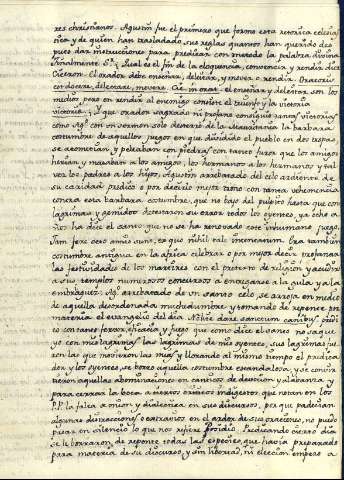 res christianos. Agustin fue el primero que formo esta retorica celesias
tica y de quien han trasladado sus reglas quantos han querido des
pues dar instrucciones para predicar con metodo la palabra divina
finalmente Sr. Qual es el fin de la eloquencia, convencer y rendir, dixo
Ciceron. El orador debe enseñar, delectar, y mover o rendir. Oratoris
est docere, delectare, movere. Cic. in orat. el enseñar y delectar son los
medios, pero en rendir al enemigo consiste el triunfo y la victoria
victoria. Que orador sagrado ni profano consiguio tantas victorias
como Agn. con un sermon solo desterro de la Mauritania la barbara
costumbre de aquellos juegos en que dividido el pueblo en dos tropas
se acometian y peleaban con piedras con tanto furor que los amigos
herian y mataban a los amigos, los hermanos a los hermanos y tal
vez los padres a los hijos. Agustin arrebatado del celo ardiente de
su caridad predico o por decirlo mejor trono con tanta vehemencia
contra esta barbara costumbre, que no bajo del pulpito hasta que con
lagrimas y gemidos detestaron su error todos los oyentes, ya ocho a
ños ha dice el santo que no se ha renovado este inhumano juego.
Jam fere octo annis sunt, ex quo nihil tale tentatum. Era tambien
costumbre antigua en la Africa celebrar o por mejor decir profanar
las festividades de los martires con el pretexto de religion y acudir
a sus templos numerosos concursos a entregarse a la gula y a la
embriaguez. Agn. arrebatado de un santo celo, se arroja en medio
de aquella desordenada muchedumbre y tomando de repente por
materia el evangelio del dia Nolite dare sanctum canibus,
to con tanto fervor, eficacia y fuego que como dice el santo no saque
yo con mis lagrimas las lagrimas de mis oyentes, sus lagrimas fue
ron las que movieron las mias y llorando al mismo tiempo el predica
dor y los oyentes, se borro aquella costumbre escandalosa y se convir
tieron aquellas abominaciones en canticos de devocion y alabanza y
para cerrar la boca a ciertos criticos indigestos que notan en los
P.P. la falta de union y dialectica en sus discursos, por que padezcan
algunas distracciones o extravios en el ardor de sus oraciones, no puedo
pasar en silencio lo que nos refiere Posidio. Predicando cierto dia
se le borraron de repente todas las especies que havia preparado
para materia de su discurso, y sin libertad, ni eleccion empezo a